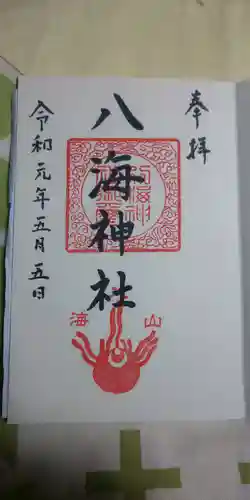 奉拝
八海神社
山海
令和元年五月五日